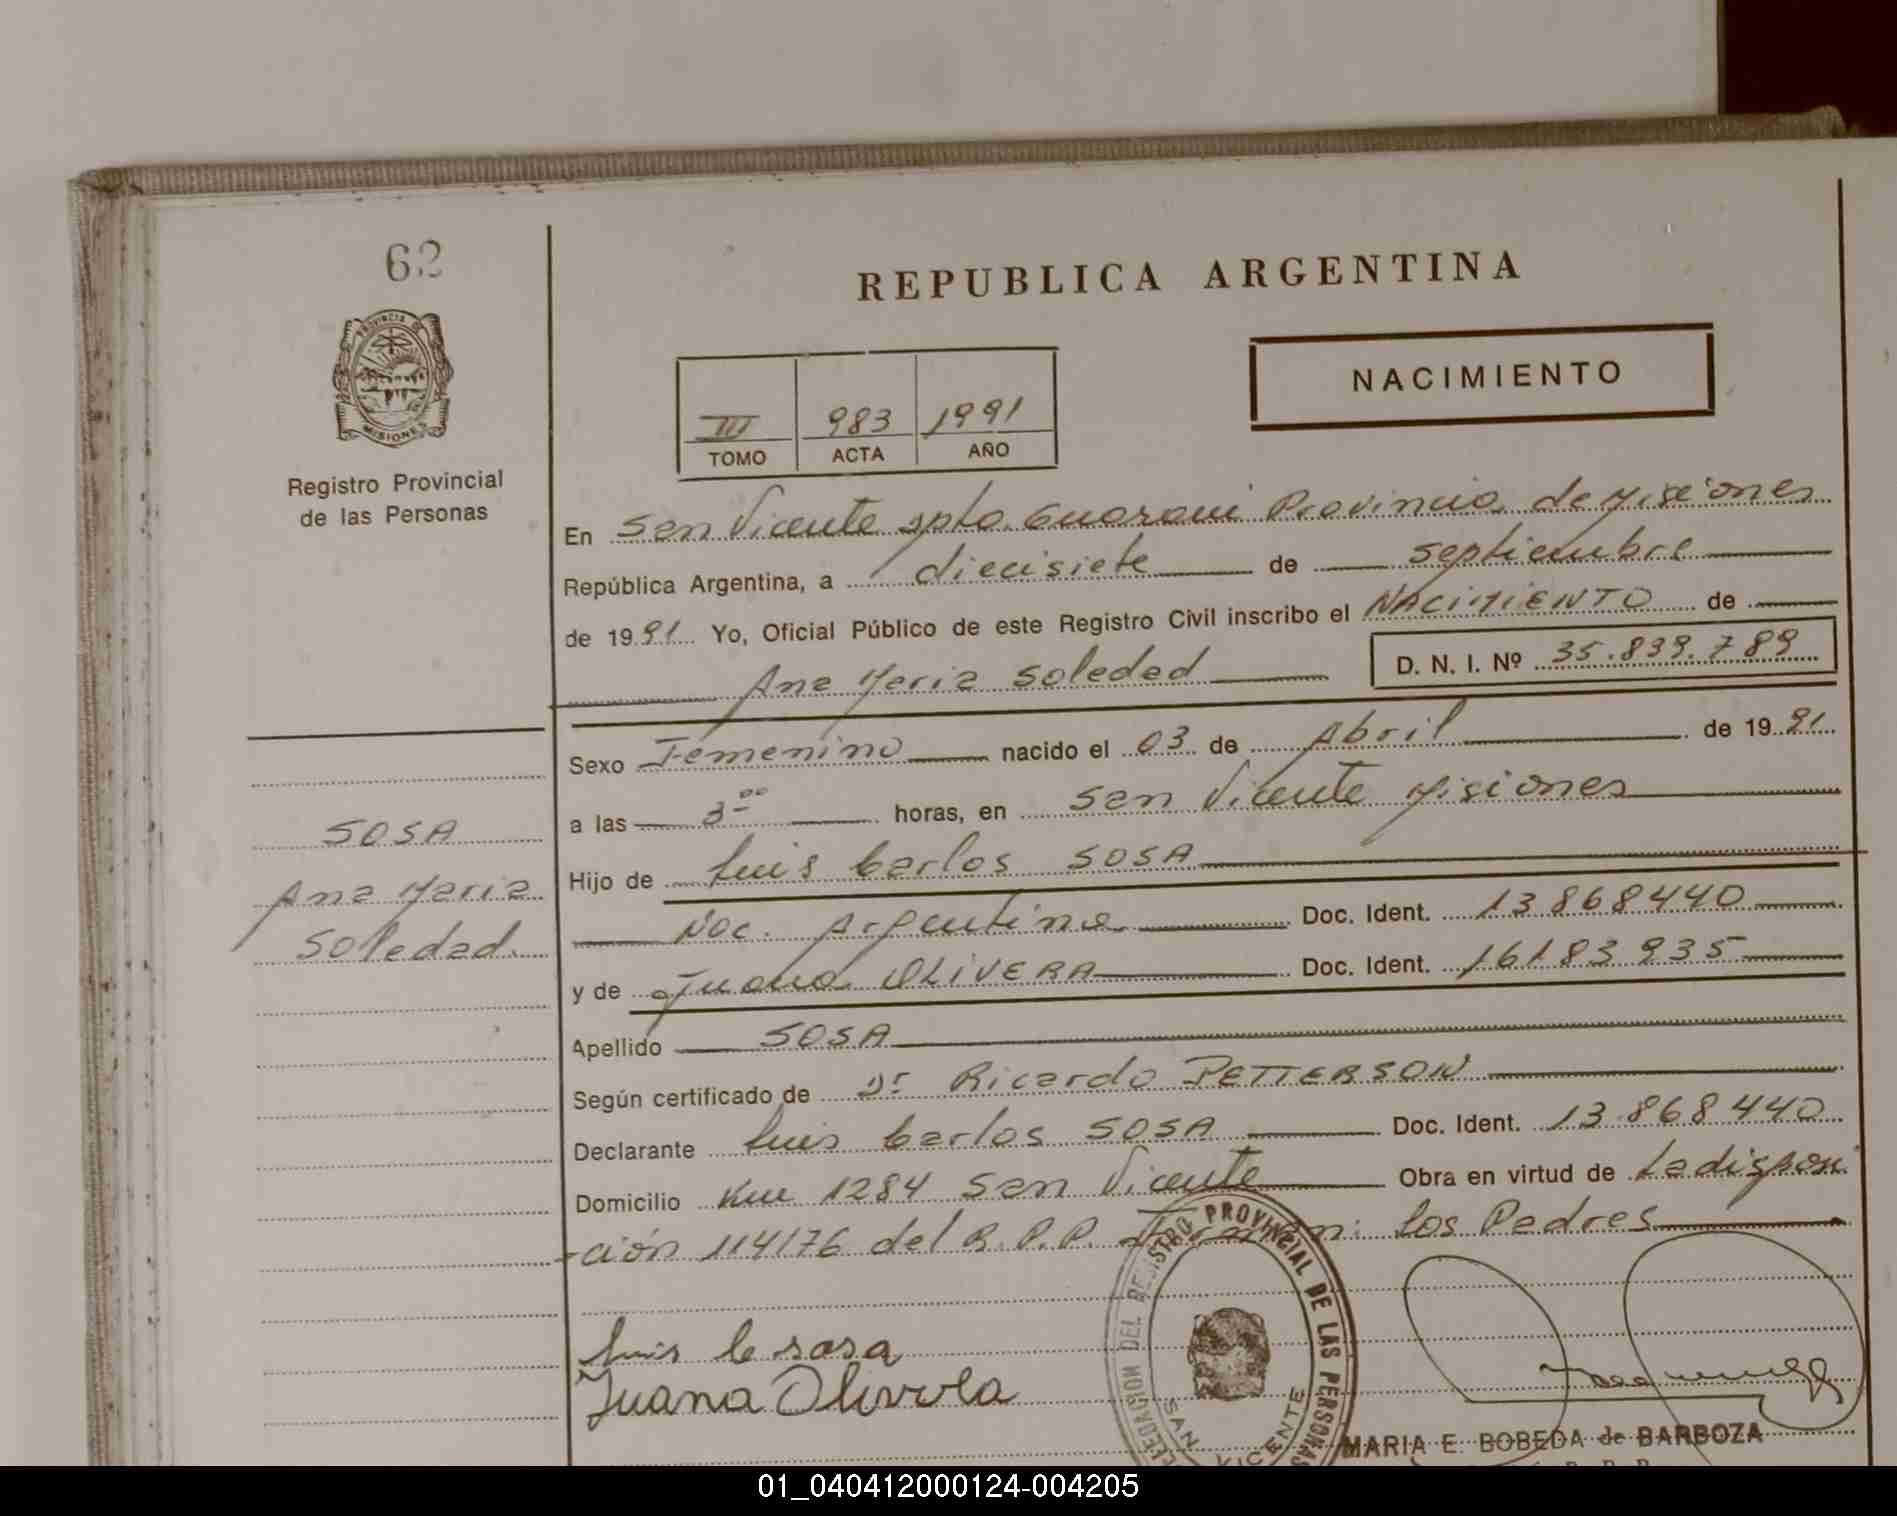 62
PROVINCIA DE
MISIONES
Registro Provincial
de las Personas
REPUBLICA ARGENTINA
NACIMIENTO
III 983 1991
TOMO ACTA AÑO
En San Vicente Dpto. Guarani Provincia de Misiones
República Argentina, a diecisiete de septiembre
de 1991 Yo, Oficial Público de este Registro Civil inscribo el NACIMIENTO de
Ana Maria Soledad D. N. I. Nº 35.839.789
Sexo Femenino nacido el 03 de Abril de 1991
a las 3 00 horas, en San Vicente Misiones
Hijo de Luis Carlos SOSA
Nac. Argentina Doc. Ident. 13868440
y de Juana OLIVERA Doc. Ident. 16183935
Apellido SOSA
Según certificado de Dr Ricardo PETTERSON
Declarante Luis Carlos SOSA Doc. Ident. 13.868.440
Domicilio Km 1284 San Vicente Obra en virtud de La dispon
-ción 114/76 del R.P.P. Firman: los Padres
SOSA
Ana Maria
Soledad.
Luis C sosa
Juana Olivera
DELEGACION DEL REGISTRO PROVINCIAL DE LAS PERSONAS
SAN VICENTE
MARIA E. BOBEDA de BARBOZA
01_040412000124-004205